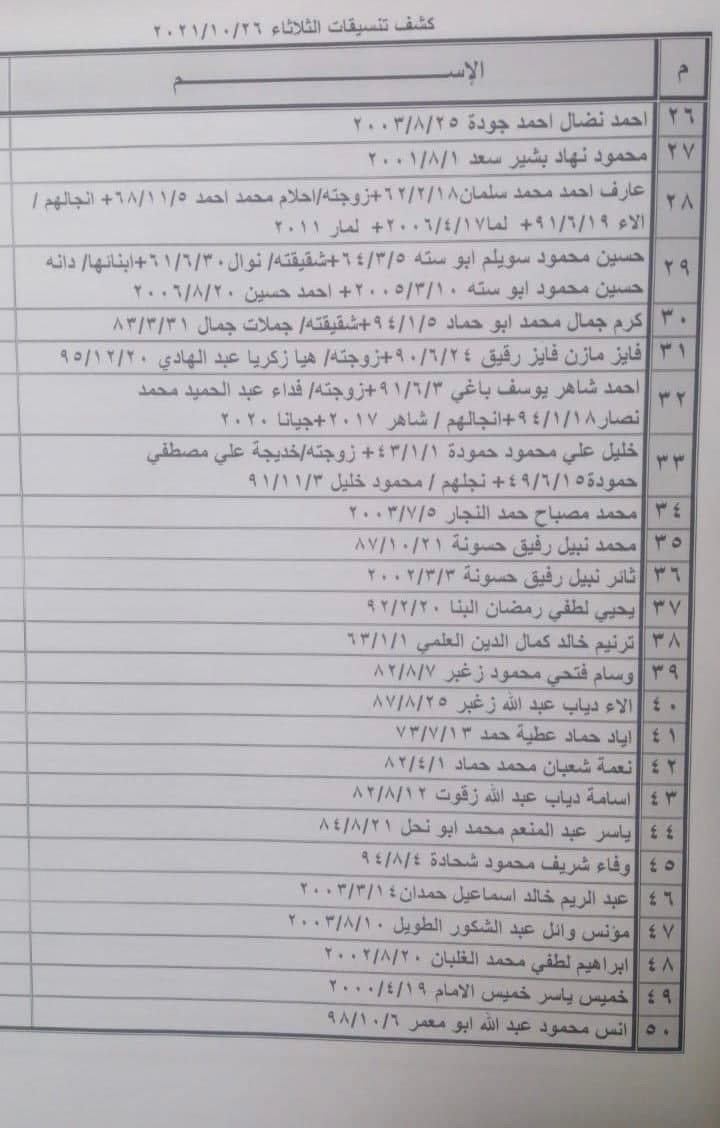 كشف تنسيقات الثلاثاء ٢٠٢١/١٠/٢٦
م الإســـــــــــــم
٢٦ احمد نضال احمد جودة ٢٠٠٣/٨/٢٥
٢٧ محمود نهاد بشير سعد ٢٠٠١/٨/١
٢٨ عارف احمد محمد سلمان٦٢/٢/١٨+زوجته/احلام محمد احمد ٦٨/١١/٥+ انجالهم /
الاء ٩١/٦/١٩+ لما٢٠٠٦/٤/١٧+ لمار ٢٠١١
٢٩ حسين محمود سويلم ابو سته ٦٤/٣/٥+شقيقته/ نوال٦١/٦/٣٠+ابنائها/ دانه
حسين محمود ابو سته ٢٠٠٥/٣/١٠+ احمد حسين ٢٠٠٦/٨/٢٠
٣٠ كرم جمال محمد ابو حماد ٩٤/١/٥+شقيقته/ جملات جمال ٨٣/٣/٣١
٣١ فايز مازن فايز رقيق ٩٠/٦/٢٤+زوجته/ هيا زكريا عبد الهادي ٩٥/١٢/٢٠
٣٢ احمد شاهر يوسف باغي ٩١/٦/٣+زوجته/ فداء عبد الحميد محمد
نصار٩٤/١/١٨+انجالهم / شاهر ٢٠١٧+جيانا ٢٠٢٠
٣٣ خليل علي محمود حمودة ٤٣/١/١+ زوجته/خديجة علي مصطفي
حمودة٤٩/٦/١٥+ نجلهم / محمود خليل ٩١/١١/٣
٣٤ محمد مصباح حمد النجار ٢٠٠٣/٧/٥
٣٥ محمد نبيل رفيق حسونة ٨٧/١٠/٢١
٣٦ ثائر نبيل رفيق حسونة ٢٠٠٢/٣/٣
٣٧ يحيي لطفي رمضان البنا ٩٢/٢/٢٠
٣٨ ترنيم خالد كمال الدين العلمي ٦٣/١/١
٣٩ وسام فتحي محمود زغبر ٨٢/٨/٧
٤٠ الاء دياب عبد الله زغبر ٨٧/٨/٢٥
٤١ اياد حماد عطية حمد ٧٣/٧/١٣
٤٢ نعمة شعبان محمد حماد ٨٢/٤/١
٤٣ اسامة دياب عبد الله زقوت ٨٢/٨/١٢
٤٤ ياسر عبد المنعم محمد ابو نحل ٨٤/٨/٢١
٤٥ وفاء شريف محمود شحادة ٩٤/٨/٤
٤٦ عبد الريم خالد اسماعيل حمدان٢٠٠٣/٣/١٤
٤٧ مؤنس وائل عبد الشكور الطويل ٢٠٠٣/٨/١٠
٤٨ ابراهيم لطفي محمد الغلبان ٢٠٠٢/٨/٢٠
٤٩ خميس ياسر خميس الامام ٢٠٠٠/٤/١٩
٥٠ انس محمود عبد الله ابو معمر ٩٨/١٠/٦